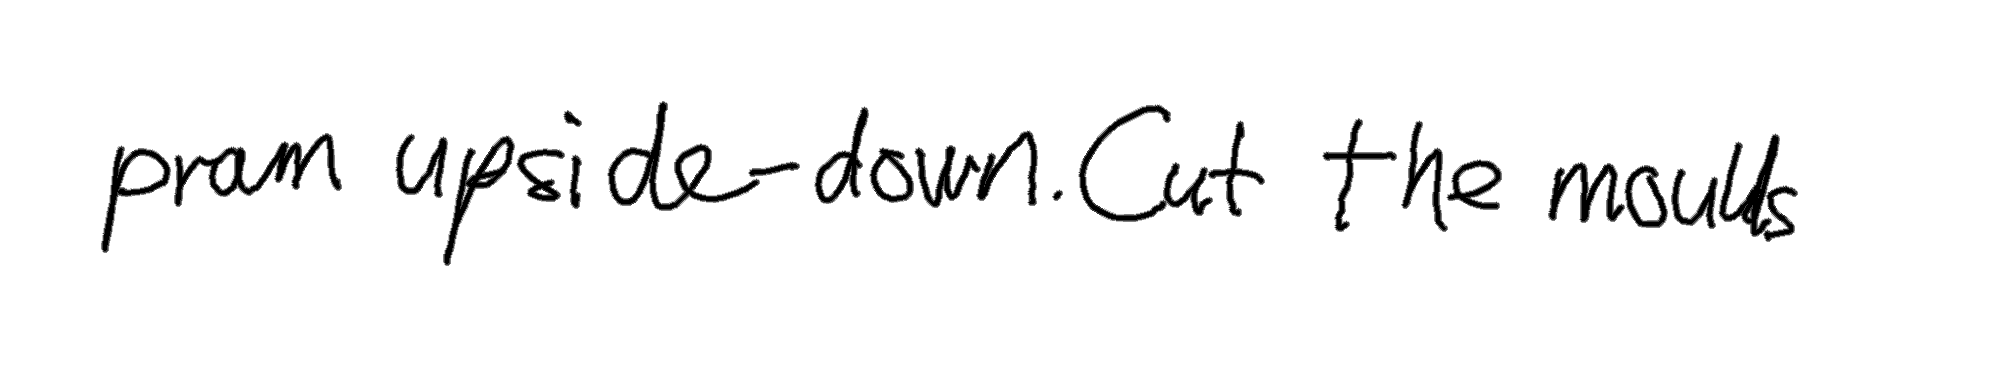 pram upside-down. Cut the moulds